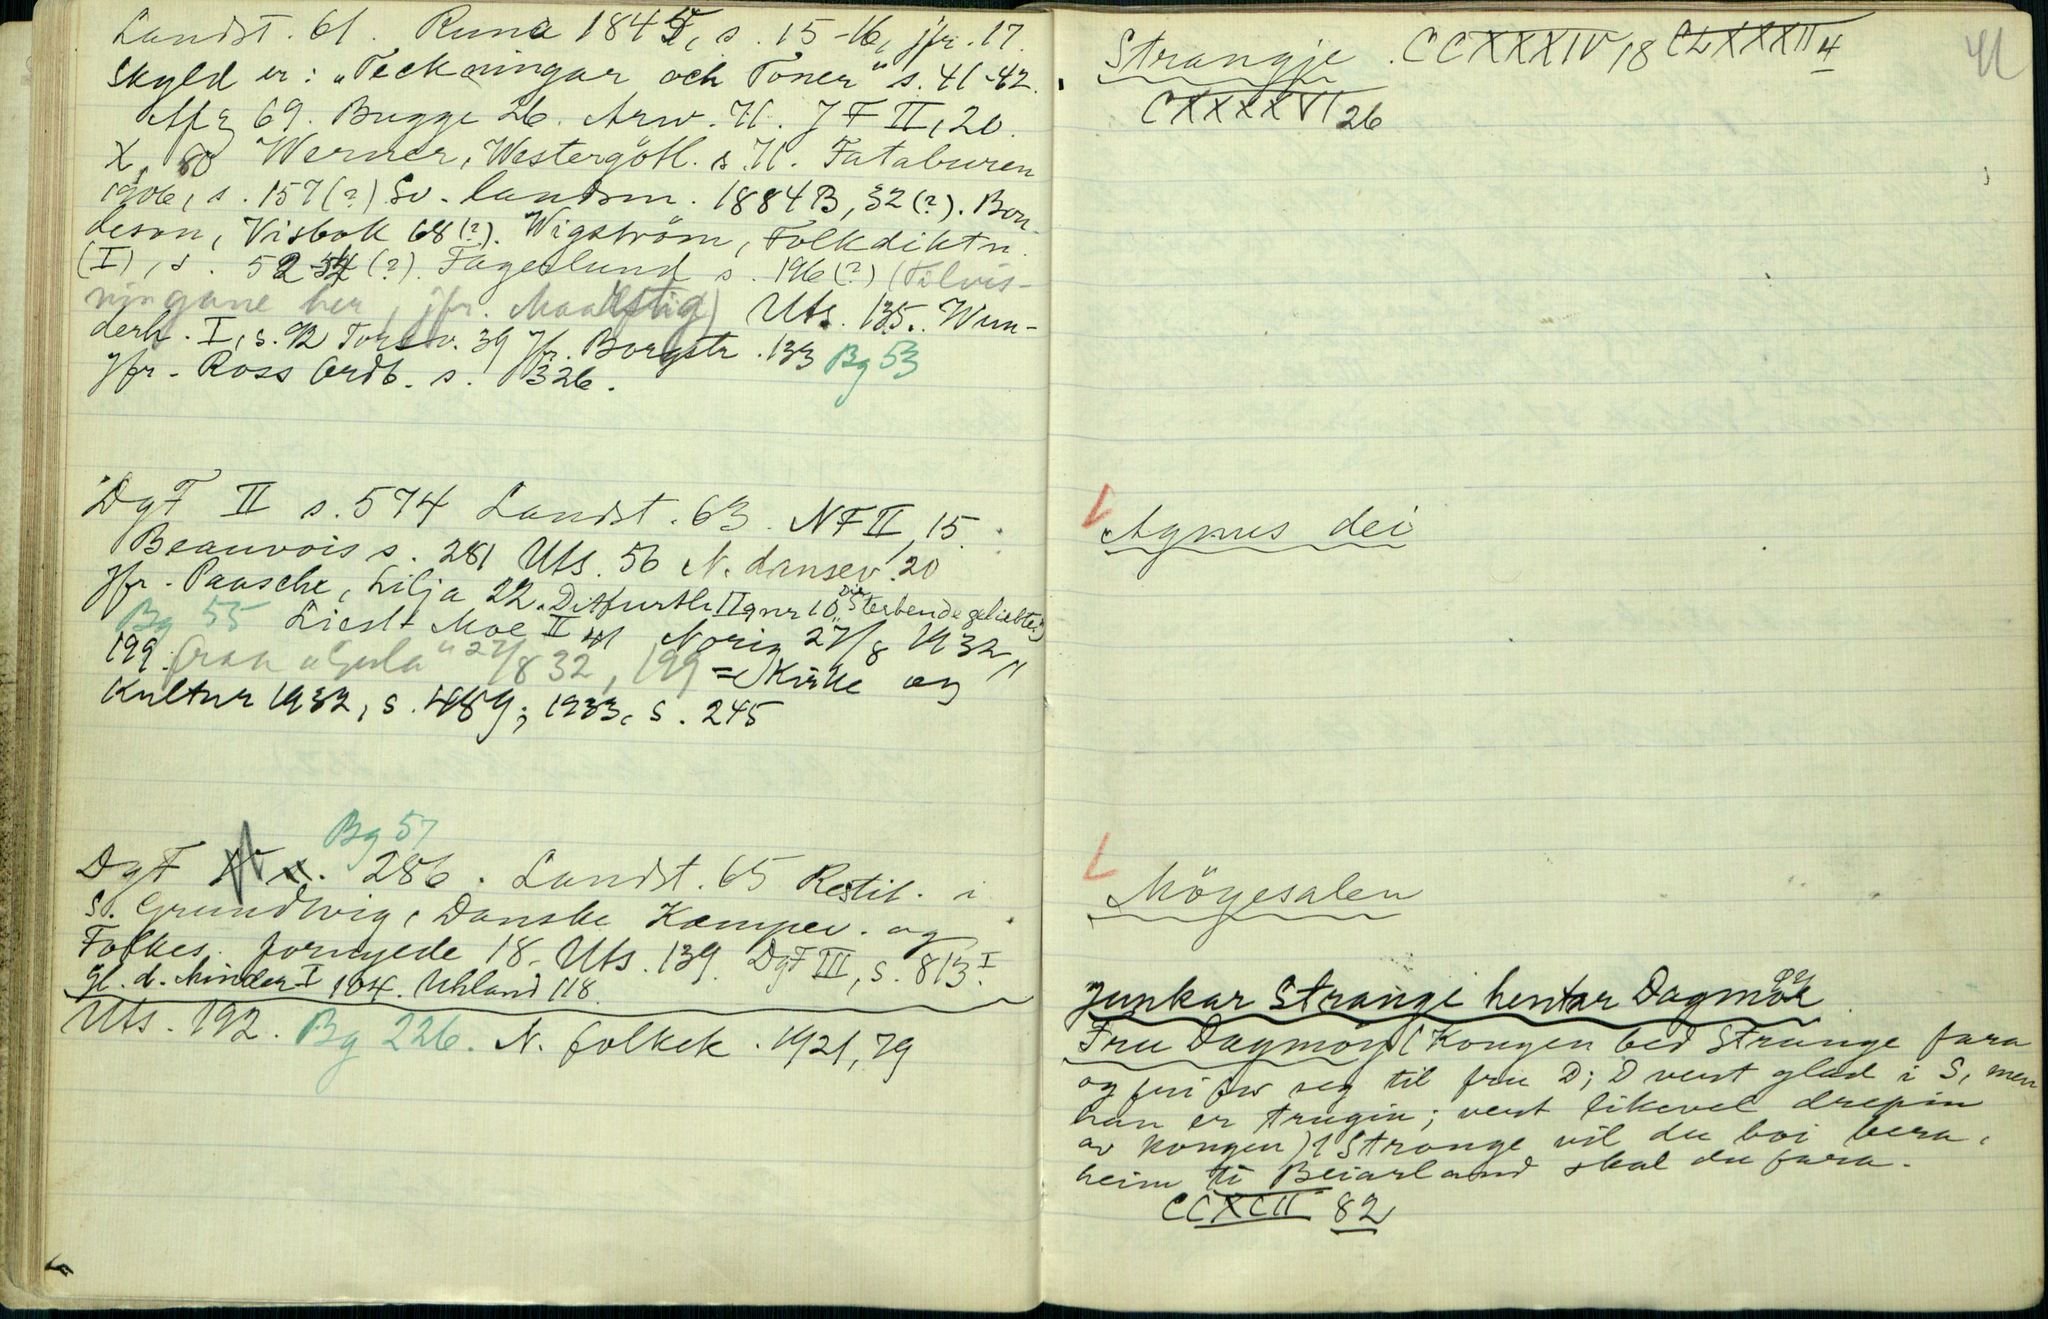 Landst. 61. Runa 1845, s. 15-16, jfr. 17.
Skyld er: „Teckningar och Toner" s. 41-42.
Afz 69. Bugge 26. Arw. 71. JFII, 20.
X, 80 Werner, Westergötl. s. 71. Fataburen
1906, s. 157(?) Sv. landsm. 1884B, 32(?). Bon-
deson, Visbok 68(?). Wigström, Folkdiktn.
(I), s. 52-54(?). Fagerlund s. 196(?) (Tilvis-
ningane her, jfr. Maarstig) Uts. 135. Wun-
derh. I, s. 92 Torsv. 39 Jfr. Borgstr. 133 Bg 53
Jfr. Ross Ordb. s. 326.
DgF II s. 574 Landst. 63. NFII, 15.
Beauvois s. 281 Uts. 56 N. dansev. 20
Jfr. Paasche, Lilja 22. Ditfurth II nr 10 „Die Sterbende geliebte"
Bg 55 Liest Moe II Norig 27/8 1932,
199. fraa „Gula" 27/8 32, 199 = Kirke og
Kultur 1932, s. 489; 1933, s. 245
Bg 57
DgF 286. Landst. 65 Restit. i
S. Grundtvig, Danske Kæmpev. og
Folkes. fornyede 18. Uts. 139. DgF III, s. 813 I.
Gl. d. Minder I 104. Uhland 118.
Uts. 192. Bg 226. N. folkek. 1921, 79
41
Strangje. CCXXXIV 18 CLXXXII 4
CXXXXVI 26
Agnus dei
Möyesalen
Junkar Strangi hentar Dagmöy
Fru Dagmöy (Kongen bed Strange fara
og fri for seg til fru D; D vert glad i S, men
han er trugin; vert likevel drepin
av kongen) 1 Strange vil du boi bera,
heim ti Beiarland skal du fara.
CCXCII 82